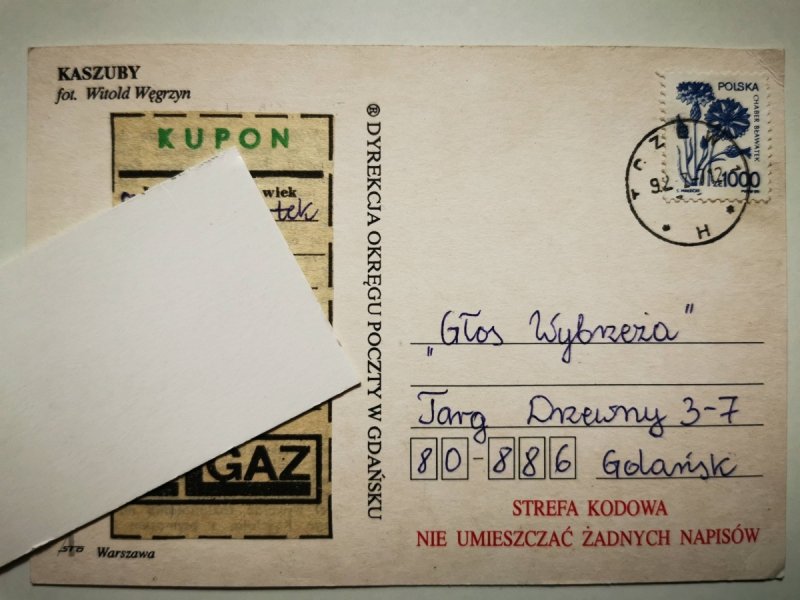 KASZUBY
fot. Witold Węgrzyn
KUPON
wiek
tek
GAZ
Warszawa
® DYREKCJA OKRĘGU POCZTY W GDAŃSKU
POLSKA
CHABER BŁAWATEK
1000
"Głos Wybrzeża"
Targ Drzewny 3-7
80-886 Gdańsk
STREFA KODOWA
NIE UMIESZCZAĆ ŻADNYCH NAPISÓW